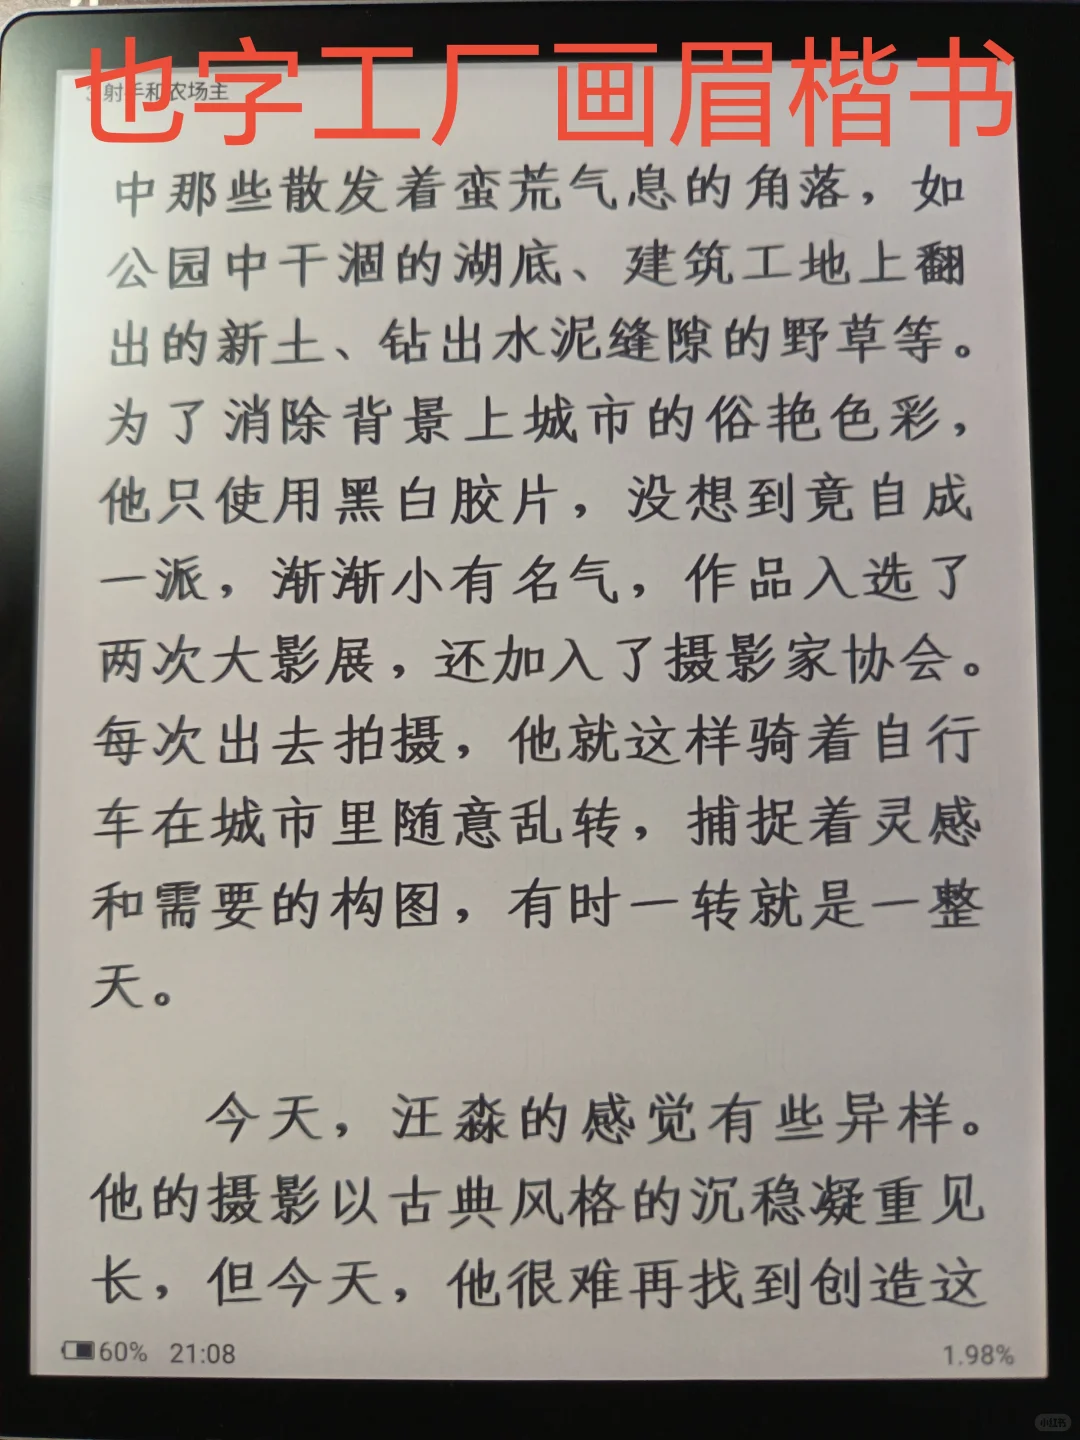 也字工厂画眉楷书
射手和农场主
中那些散发着蛮荒气息的角落，如
公园中干涸的湖底、建筑工地上翻
出的新土、钻出水泥缝隙的野草等。
为了消除背景上城市的俗艳色彩，
他只使用黑白胶片，没想到竟自成
一派，渐渐小有名气，作品入选了
两次大影展，还加入了摄影家协会。
每次出去拍摄，他就这样骑着自行
车在城市里随意乱转，捕捉着灵感
和需要的构图，有时一转就是一整
天。
今天，汪淼的感觉有些异样。
他的摄影以古典风格的沉稳凝重见
长，但今天，他很难再找到创造这
60% 21:08
1.98%
小红书